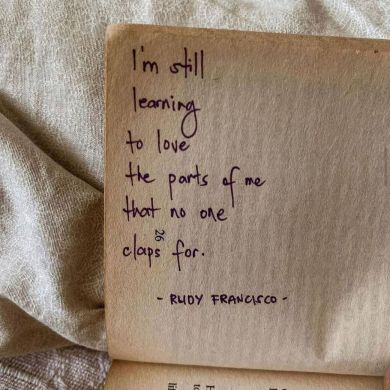 I'm still
learning
to love
the parts of me
that no one
claps for.
26
- RUDY FRANCISCO -